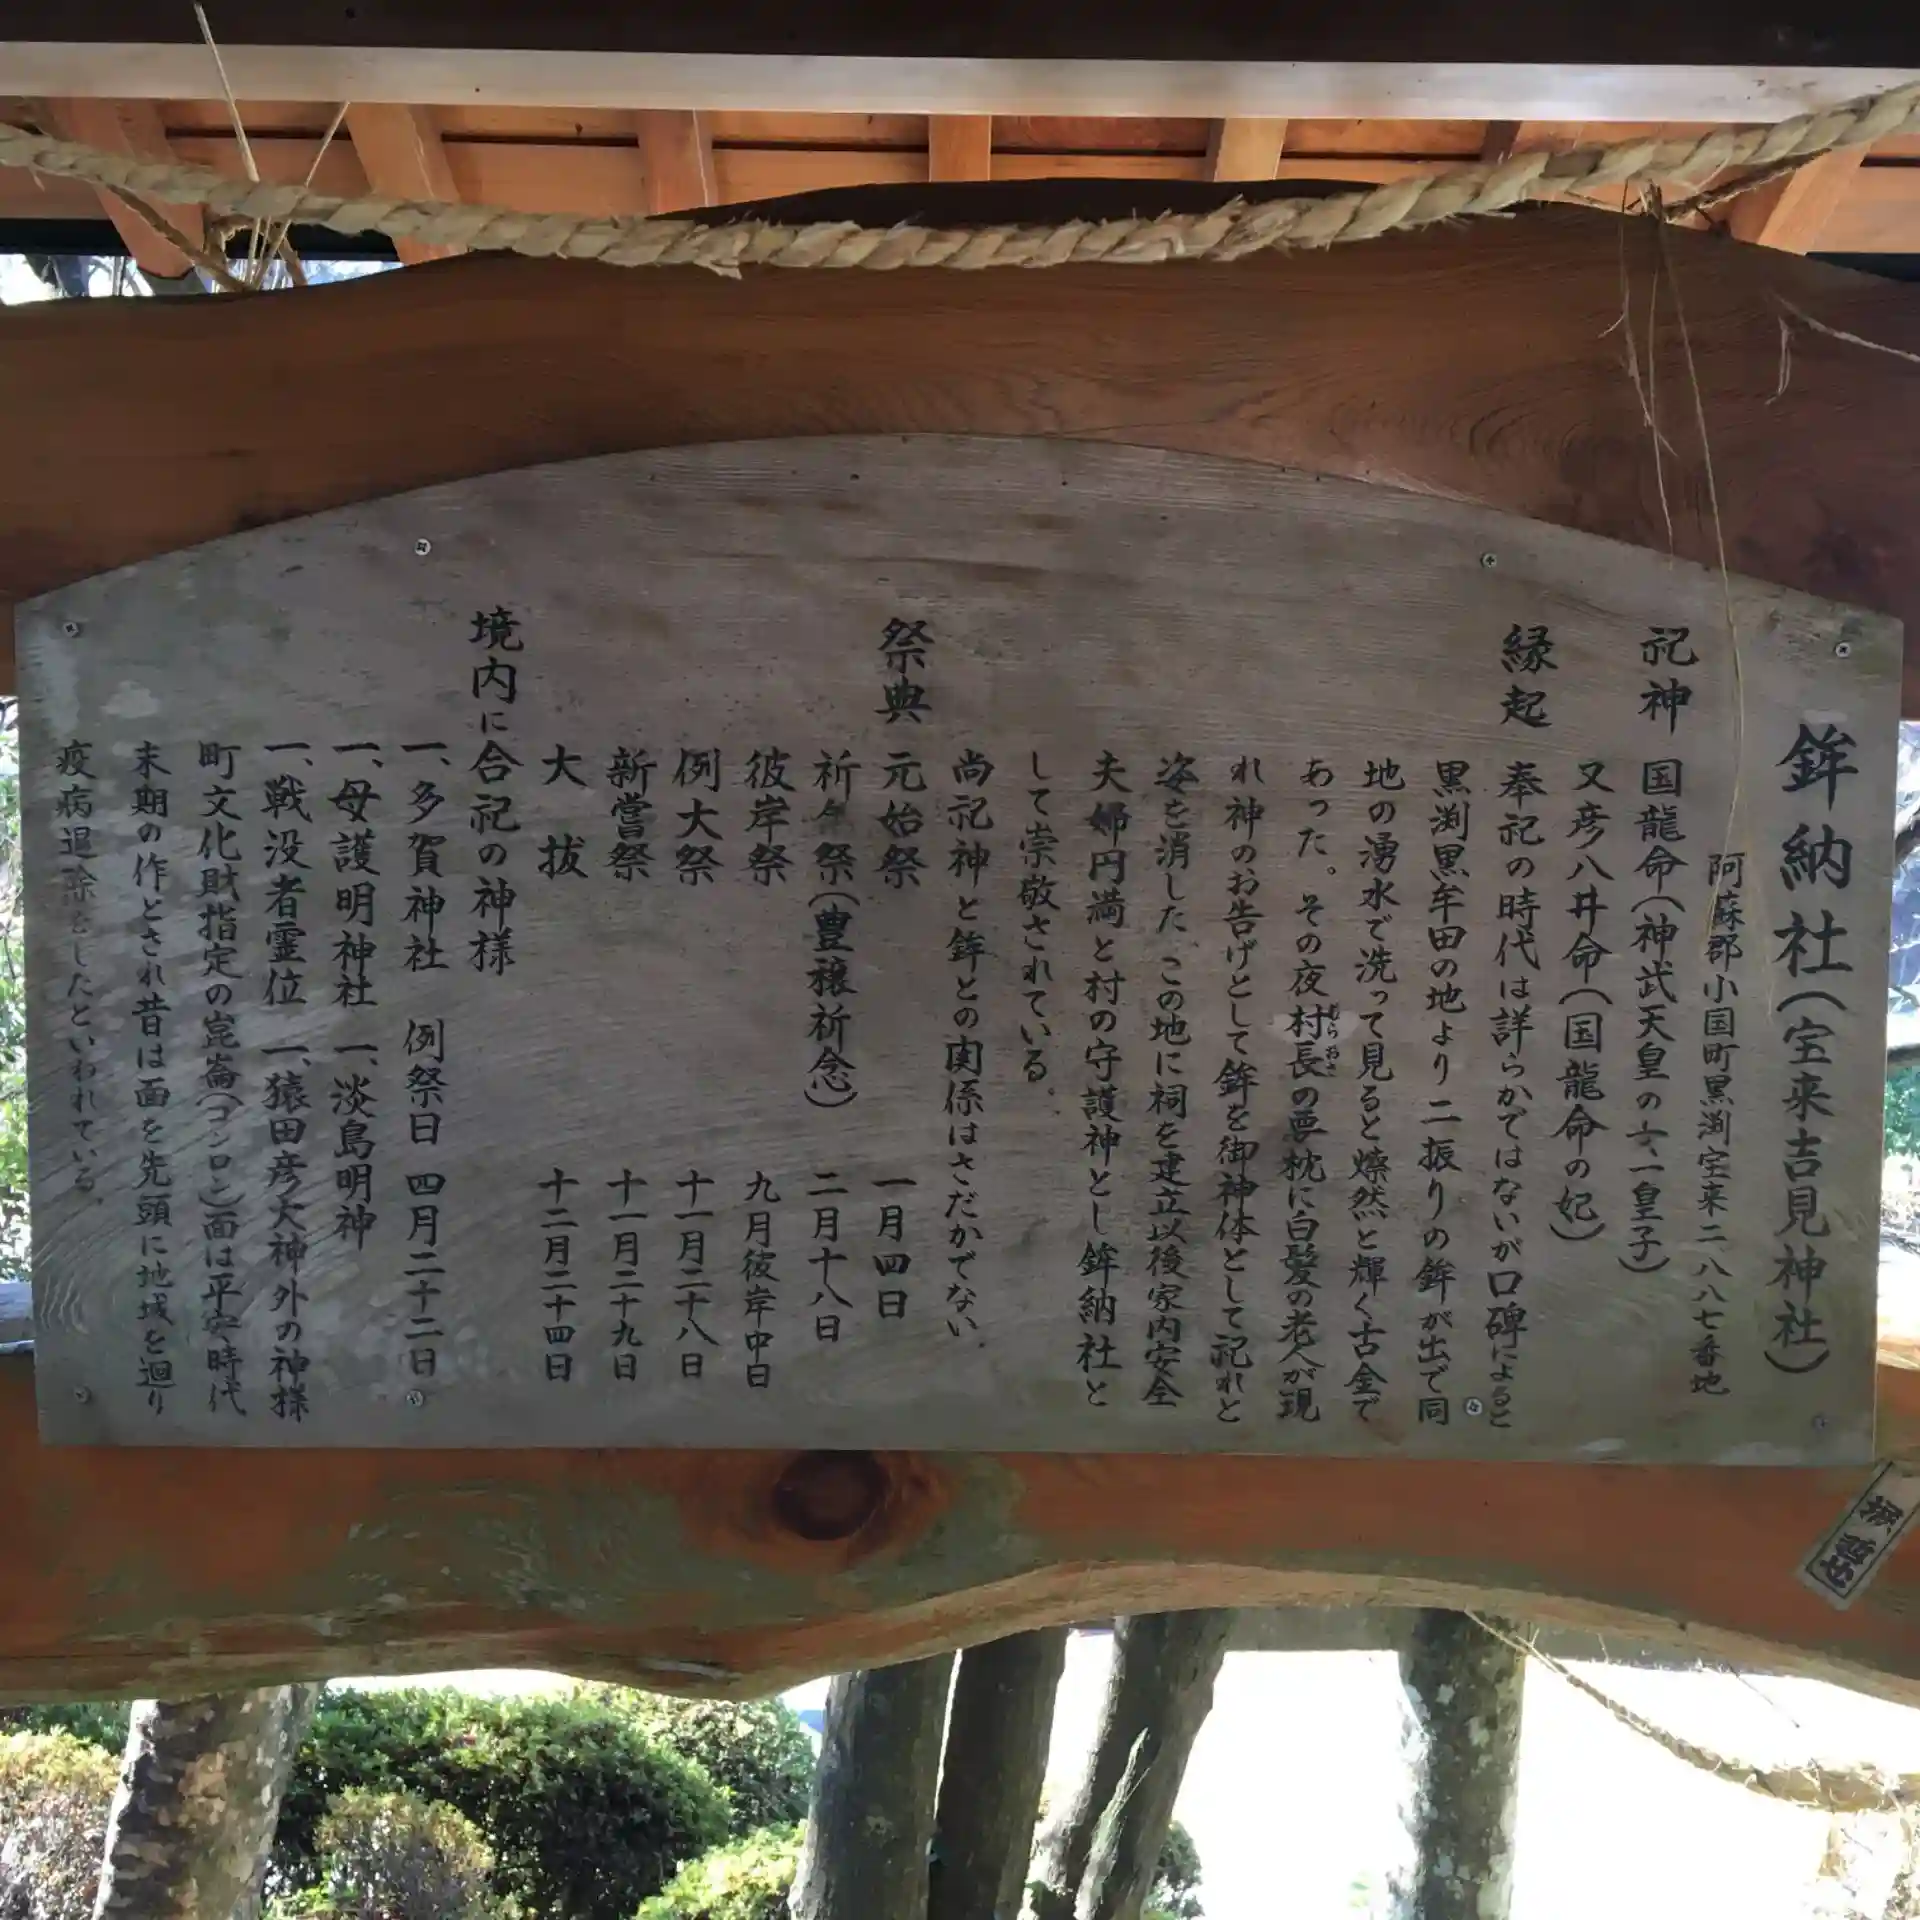 鉾納社(宝来吉見神社)
阿蘇郡小国町黒渕宝来二、八八七番地
祀神 国龍命(神武天皇の六、一皇子)
又彦八井命(国龍命の妃)
縁起 奉祀の時代は詳らかではないが口碑によると
黒渕黒牟田の地より二振りの鉾が出で同
地の湧水で洗って見ると燦然と輝く古金で
あった。その夜村長の夢枕に白髪の老人が現
むらおさ
れ神のお告げとして鉾を御神体として祀れと
姿を消した この地に祠を建立以後家内安全
夫婦円満と村の守護神とし鉾納社と
して崇敬されている。
尚祀神と鉾との関係はさだかでない。
祭典 元始祭 一月四日
祈年祭(豊穣祈念) 二月十八日
彼岸祭 九月彼岸中日
例大祭 十一月二十八日
新嘗祭 十一月二十九日
大 抜 十二月二十四日
境内に合祀の神様
一、多賀神社 例祭日 四月二十二日
一、母護明神社 一、淡島明神
一、戦没者霊位 一、猿田彦大神外の神様
町文化財指定の崑崙(コンロン)面は平安時代
末期の作とされ昔は面を先頭に地域を廻り
疫病退除をしたといわれている。